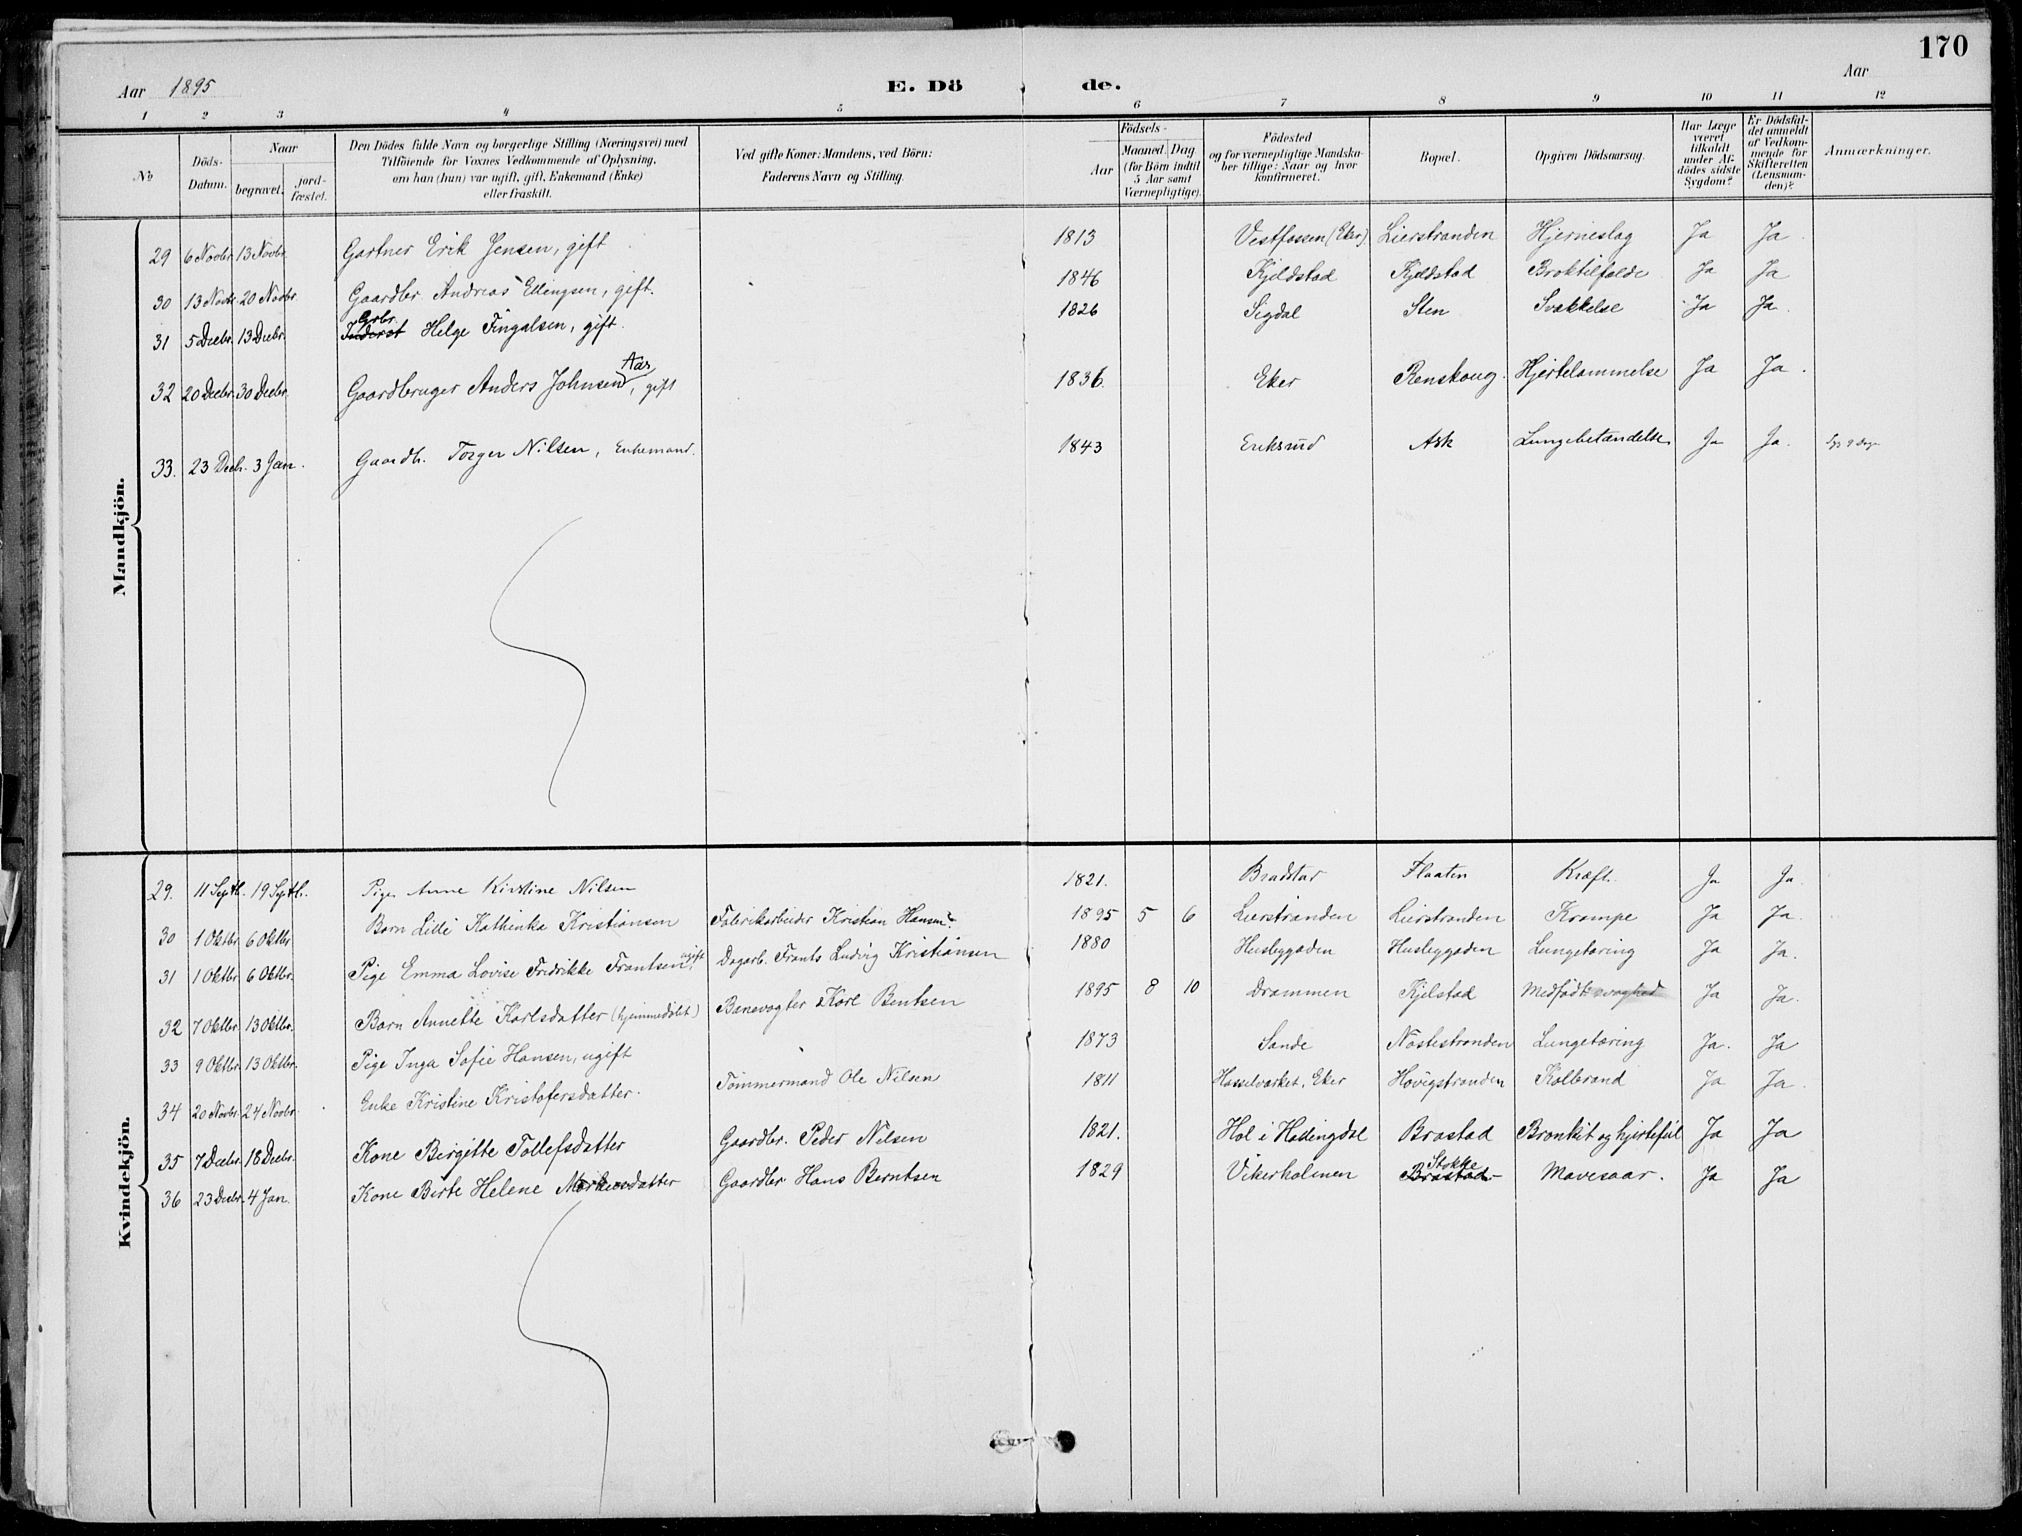 170
Aar 1895 E. Dö de. Aar
1 2 3 4 5 6 7 8 9 10 11 12
No
Döds-Datum.
Naar begravet. jordfæstet.
Den Dödes fulde Navn og borgerlige Stilling (Næringsvei) med Tilföiende for Voxnes Vedkommende af Oplysning, om han (hun) var ugift, gift, Enkemand (Enke) eller fraskilt.
Ved gifte Koner: Mandens, ved Börn: Faderens Navn og Stilling.
Födsels- Aar Maaned. Dag (for Börn indtil 5 Aar samt Værnepligtige).
Födested og for værnepligtige Mandskaber tillige: Naar og hvor konfirmeret.
Bopæl.
Opgiven Dödsaarsag.
Har Læge været tilkaldt under Afdödes sidste Sygdom?
Er Dödsfaldet anmeldt af Vedkommende for Skifteretten (Lensmanden)?
Anmærkninger.
Mandkjön.
29 6 Novbr. 13 Novbr. Gartner Erik Jensen, gift 1813 Vestfossen (Eker) Lierstranden Hjerneslag Ja Ja
30 13 Novbr. 20 Novbr. Gaardbr. Andreas Ellingsen, gift. 1846 Kjeldstad Kjeldstad Broktilfælde Ja Ja
31 5 Decbr. 13 Decbr. Inderst Grbr. Helge Fingalsen, gift. 1826 Sigdal Sten Svækkelse Ja Ja.
32 20 Decbr. 30 Decbr. Gaardbruger Anders Johnsen Aas, gift 1836. Eker Renskoug. Hjertelammelse Ja Ja.
33. 23 Decb. 3 Jan. Gaardb. Torger Nilsen, Enkemand. 1843 Eriksrud Ask Lungebetændelse Ja Ja.
Kvindekjön.
29. 11 Septb. 19 Septb. Pige Anne Kirstine Nilsen 1821. Bradstar Flaaten Kræft. Ja Ja.
30 1 Oktbr. 6 Oktbr. Barn Lilli Kathinka Kristiansen Fabrikarbeider Kristian Hansen 1895 5 6 Lierstranden Lierstranden Krampe Ja Ja.
31 1 Oktbr. 6 Oktbr. Pige Emma Lovise Fredrikke Frantsen ugift Dagarb. Frants Ludvig Kristiansen 1880 Husbygaden Husbygaden Lungetæring Ja Ja.
32 7 Oktbr. 13 Oktbr. Barn Annette Karlsdatter (hjemmedøbt) Banevogter Karl Bentsen 1895 8 10 Drammen Kjelstad Medfødt svaghed Ja Ja.
33 9 Oktbr. 13 Oktbr. Pige Inga Sofie Hansen, ugift 1873 Sande Nøstestranden Lungetæring Ja. Ja
34 20 Novbr. 24 Novbr. Enke Kristine Kristofersdatter. Tømmermand Ole Nilsen 1811 Hasselværket, Eker Høvigstranden Kolbrand Ja Ja.
35 7 Decbr. 18 Decbr. Kone Birgitte Tollefsdatter Gaardbr. Peder Nilsen 1821. Hol i Hallingdal Brastad Bronkit og hjertefeil Ja Ja
36 23 Decbr. 4 Jan. Kone Berte Helene Markusdatter Gaardbr. Hans Berntsen 1829 Vikerholmen Brastad Stokke Mavesaar. Ja Ja